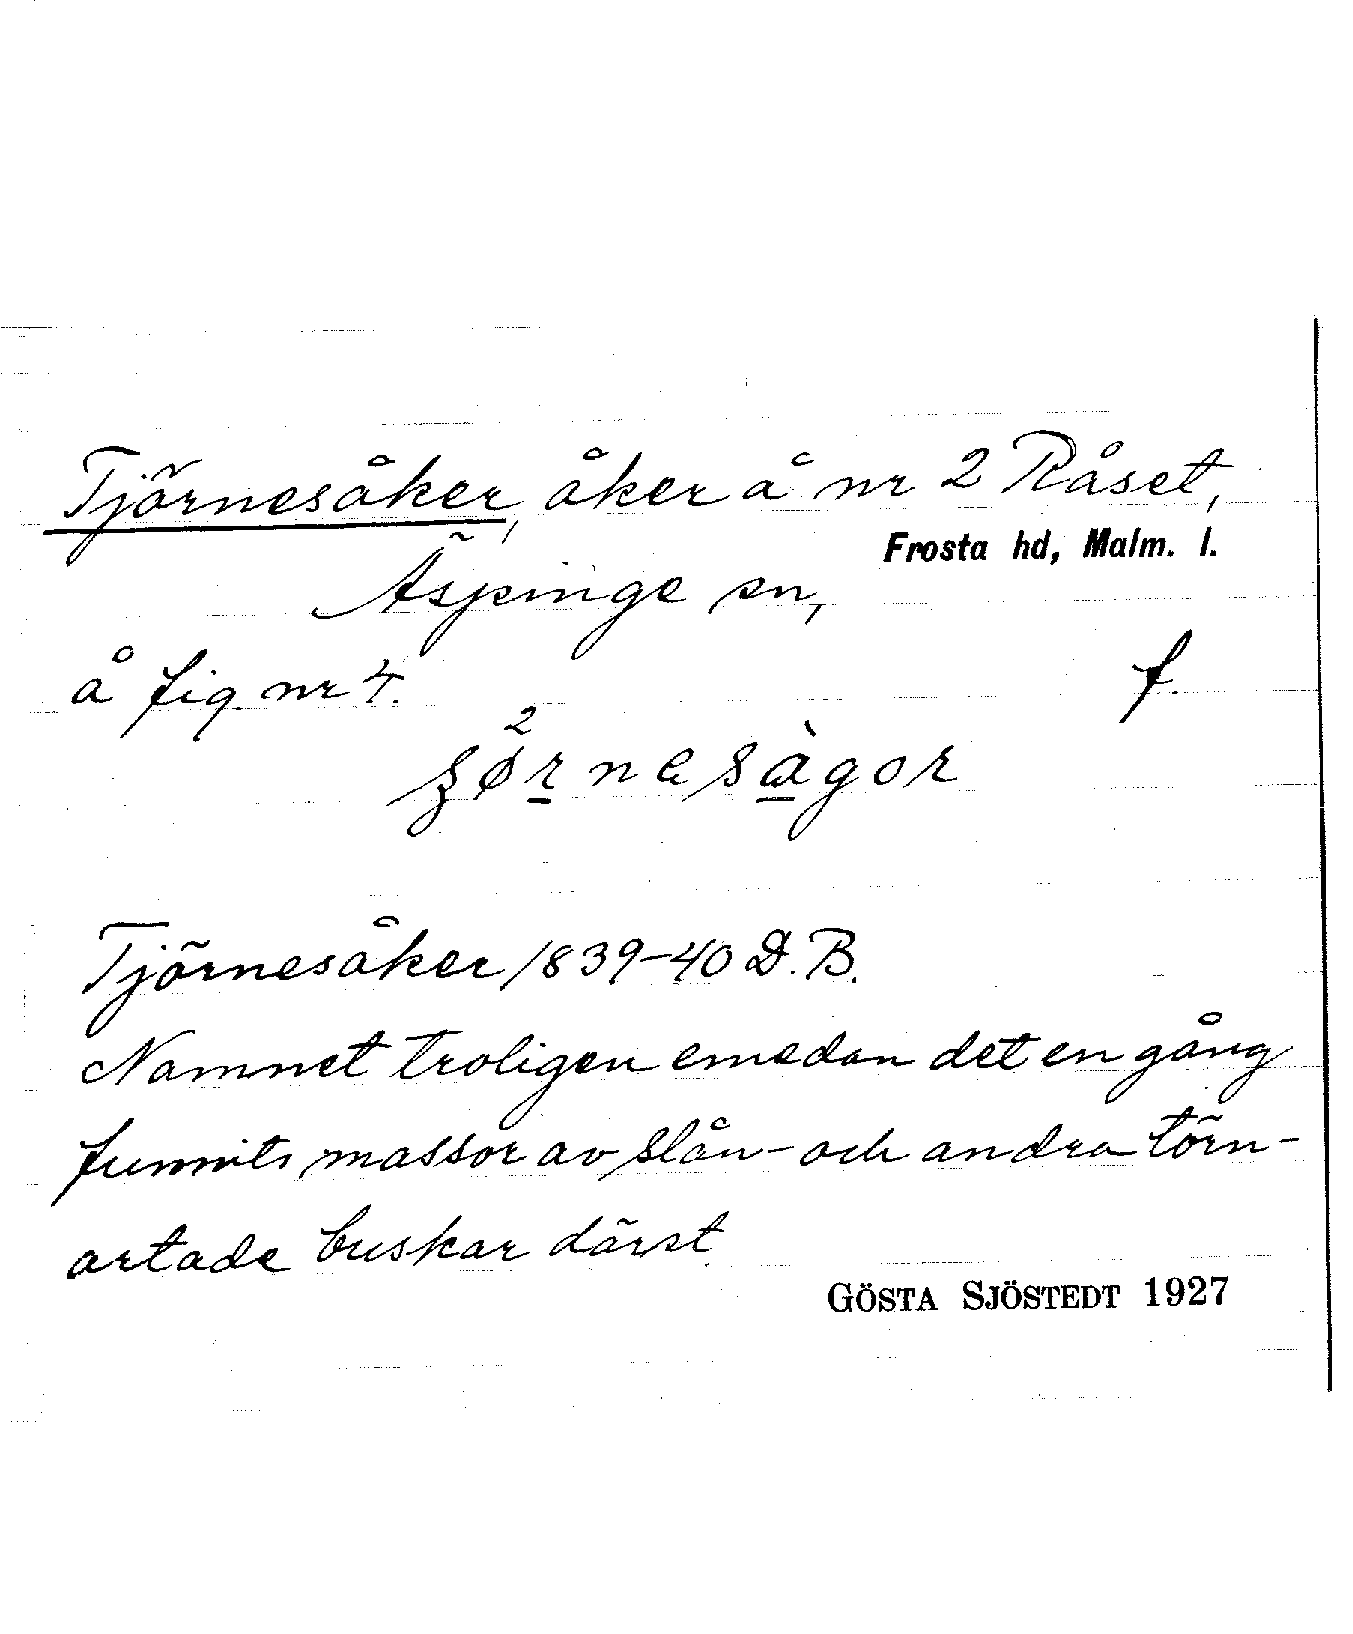 Tjörnesåker, åker å nr 2 Råset,
Frosta hd, Malm. l.
Äspinge sn,
å fig nr 4. f.
2
ʂørnesàgor
Tjörnesåker 1839-40 D.B.
Namnet troligen emedan det en gång
funnits massor av slån- och andra törn-
artade buskar därst.
GÖSTA SJÖSTEDT 1927